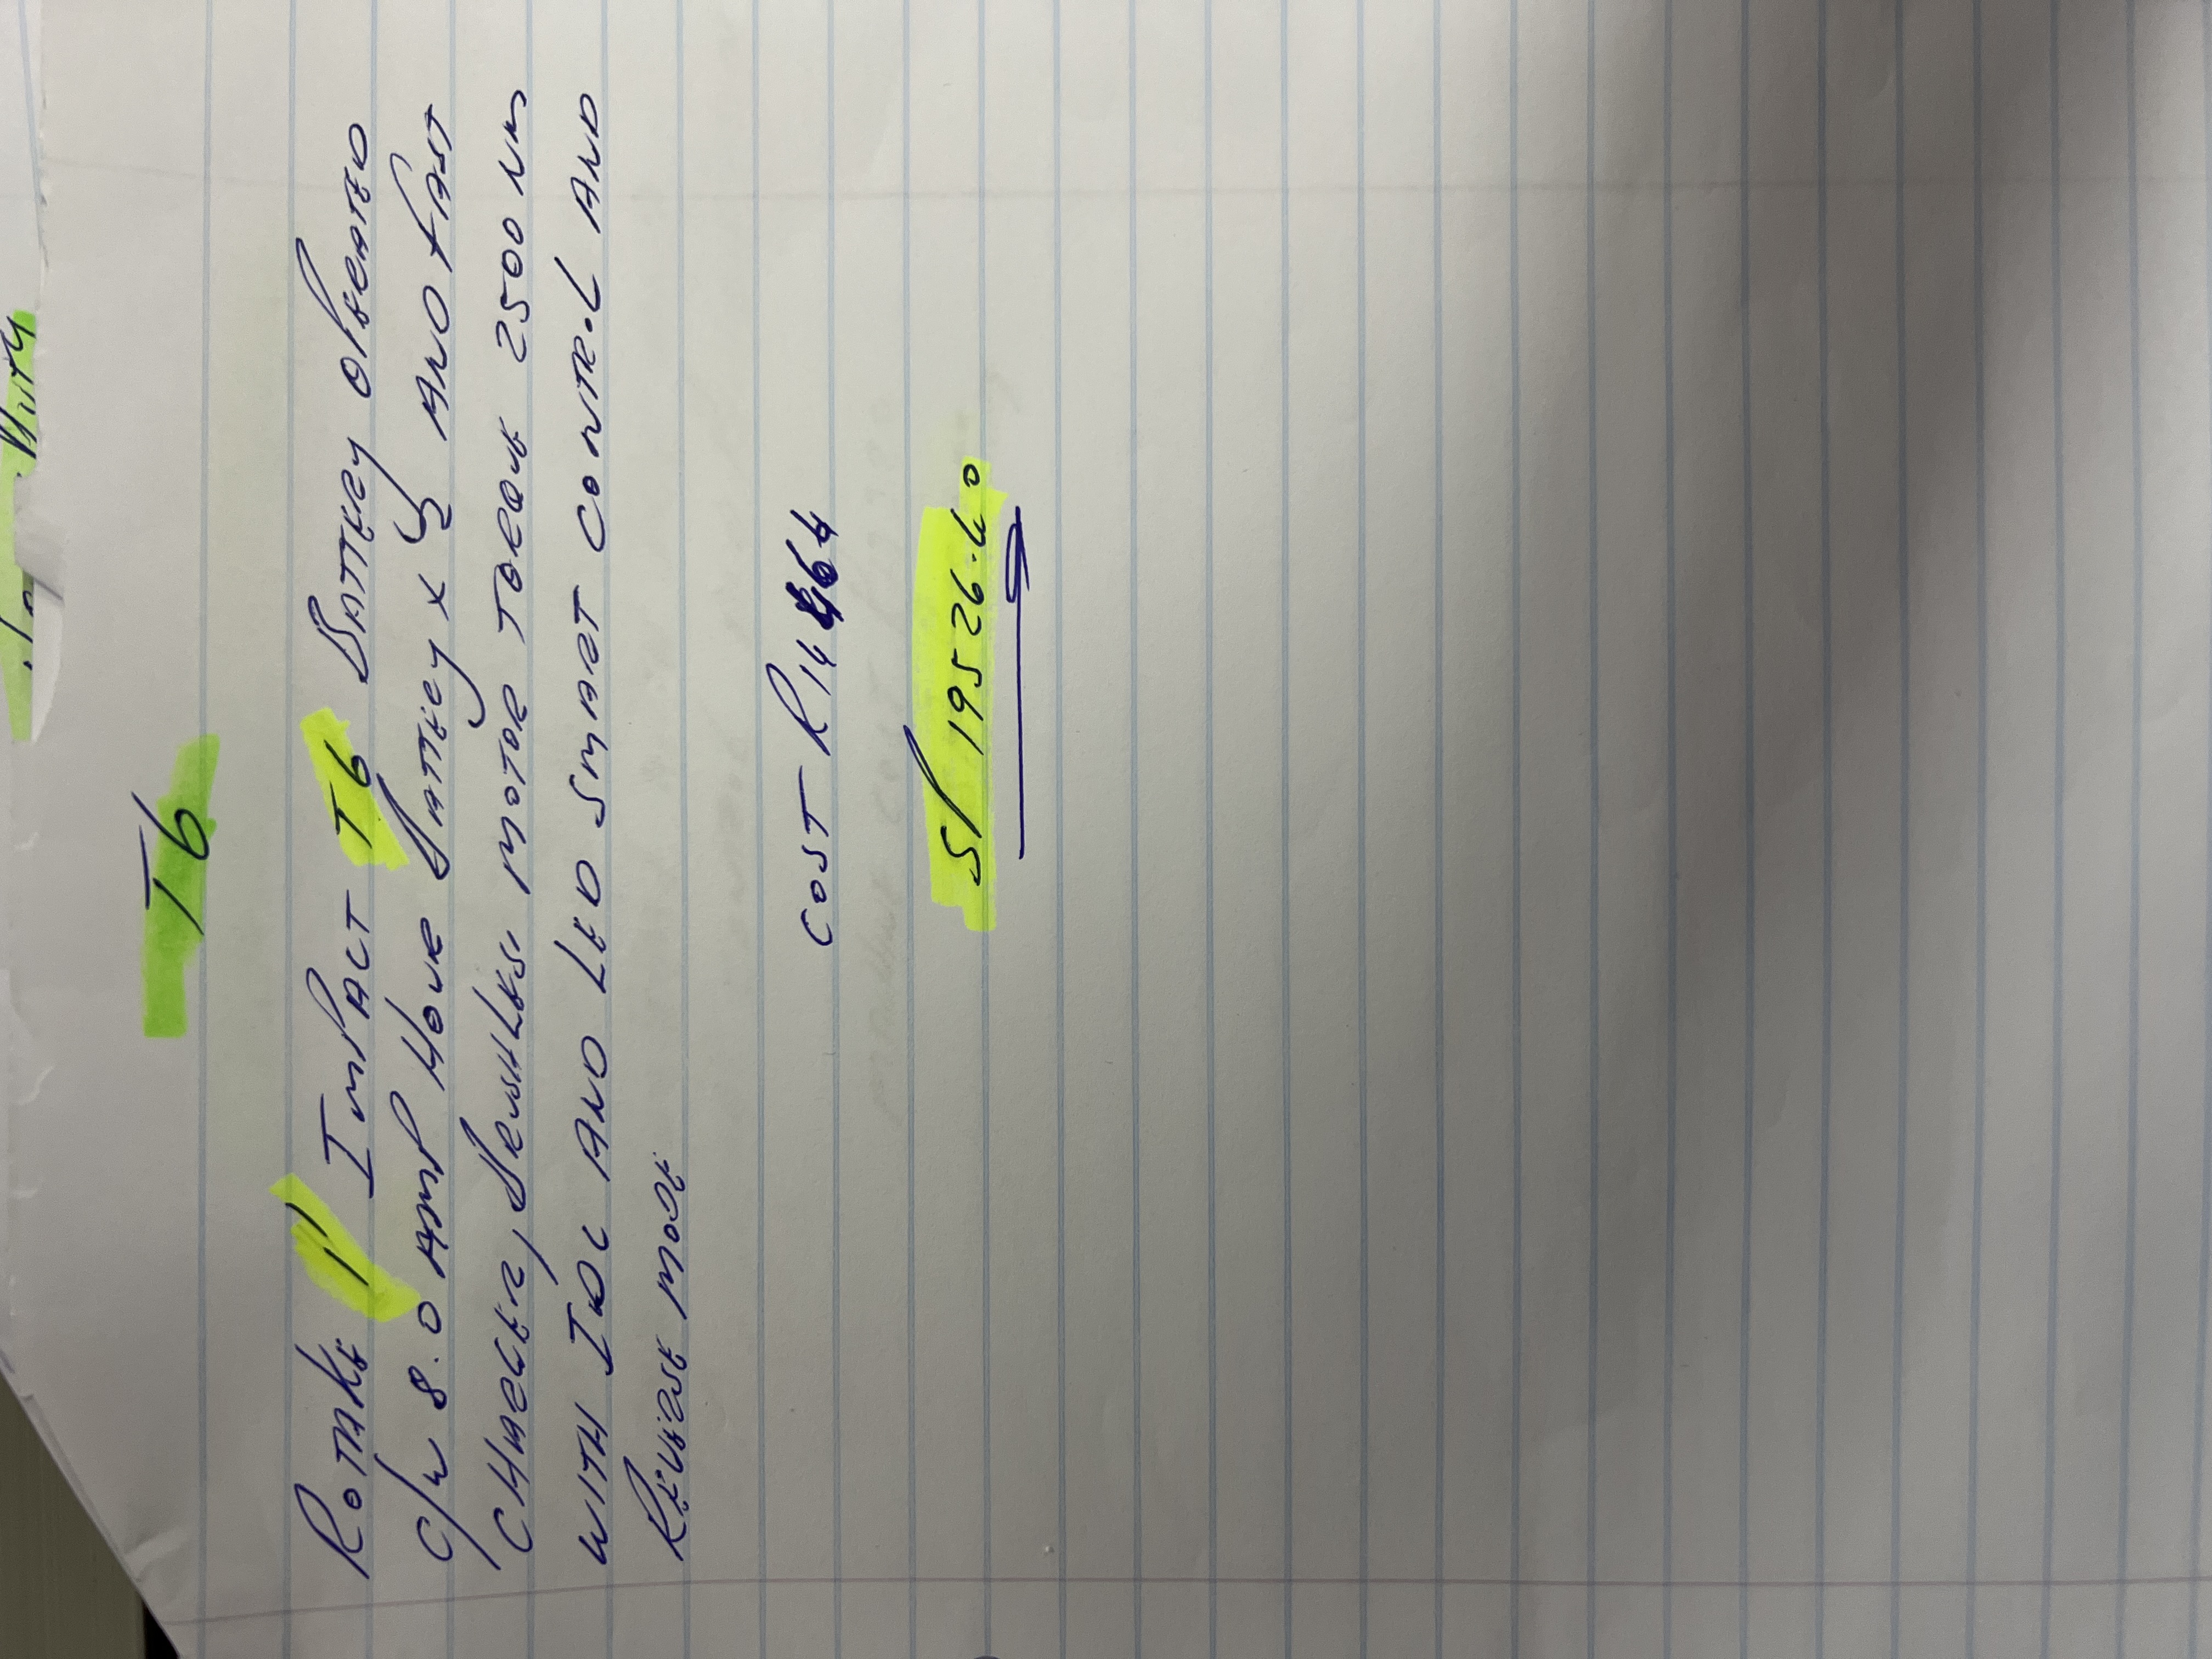 T6
ROTAKE 1" IMPACT T6 BATTERY OPERATED
C/W 8.0 AMP HOUR BATTERY x 2 AND FAST
CHARGER, BRUSHLESS MOTOR TORQUE 2500 NM
WITH IDC AND LED SMART CONTROL AND
REVERSE MODE
COST R14464
SP 19526.40